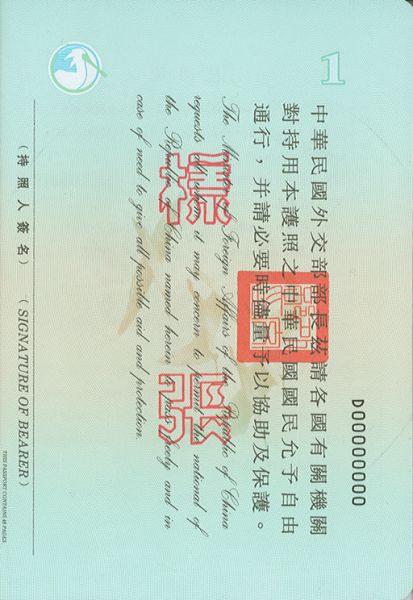 1
中華民國外交部部長茲請各國有關機關
對持用本護照之中華民國國民允予自由
通行，并請必要時儘量予以協助及保護。
The Minister of Foreign Affairs of the Republic of China
requests all whom it may concern to permit the national of
the Republic of China named herein to pass freely and in
case of need to give all possible aid and protection.
D00000000
(持照人簽名) (SIGNATURE OF BEARER)
THIS PASSPORT CONTAINS 48 PAGES.